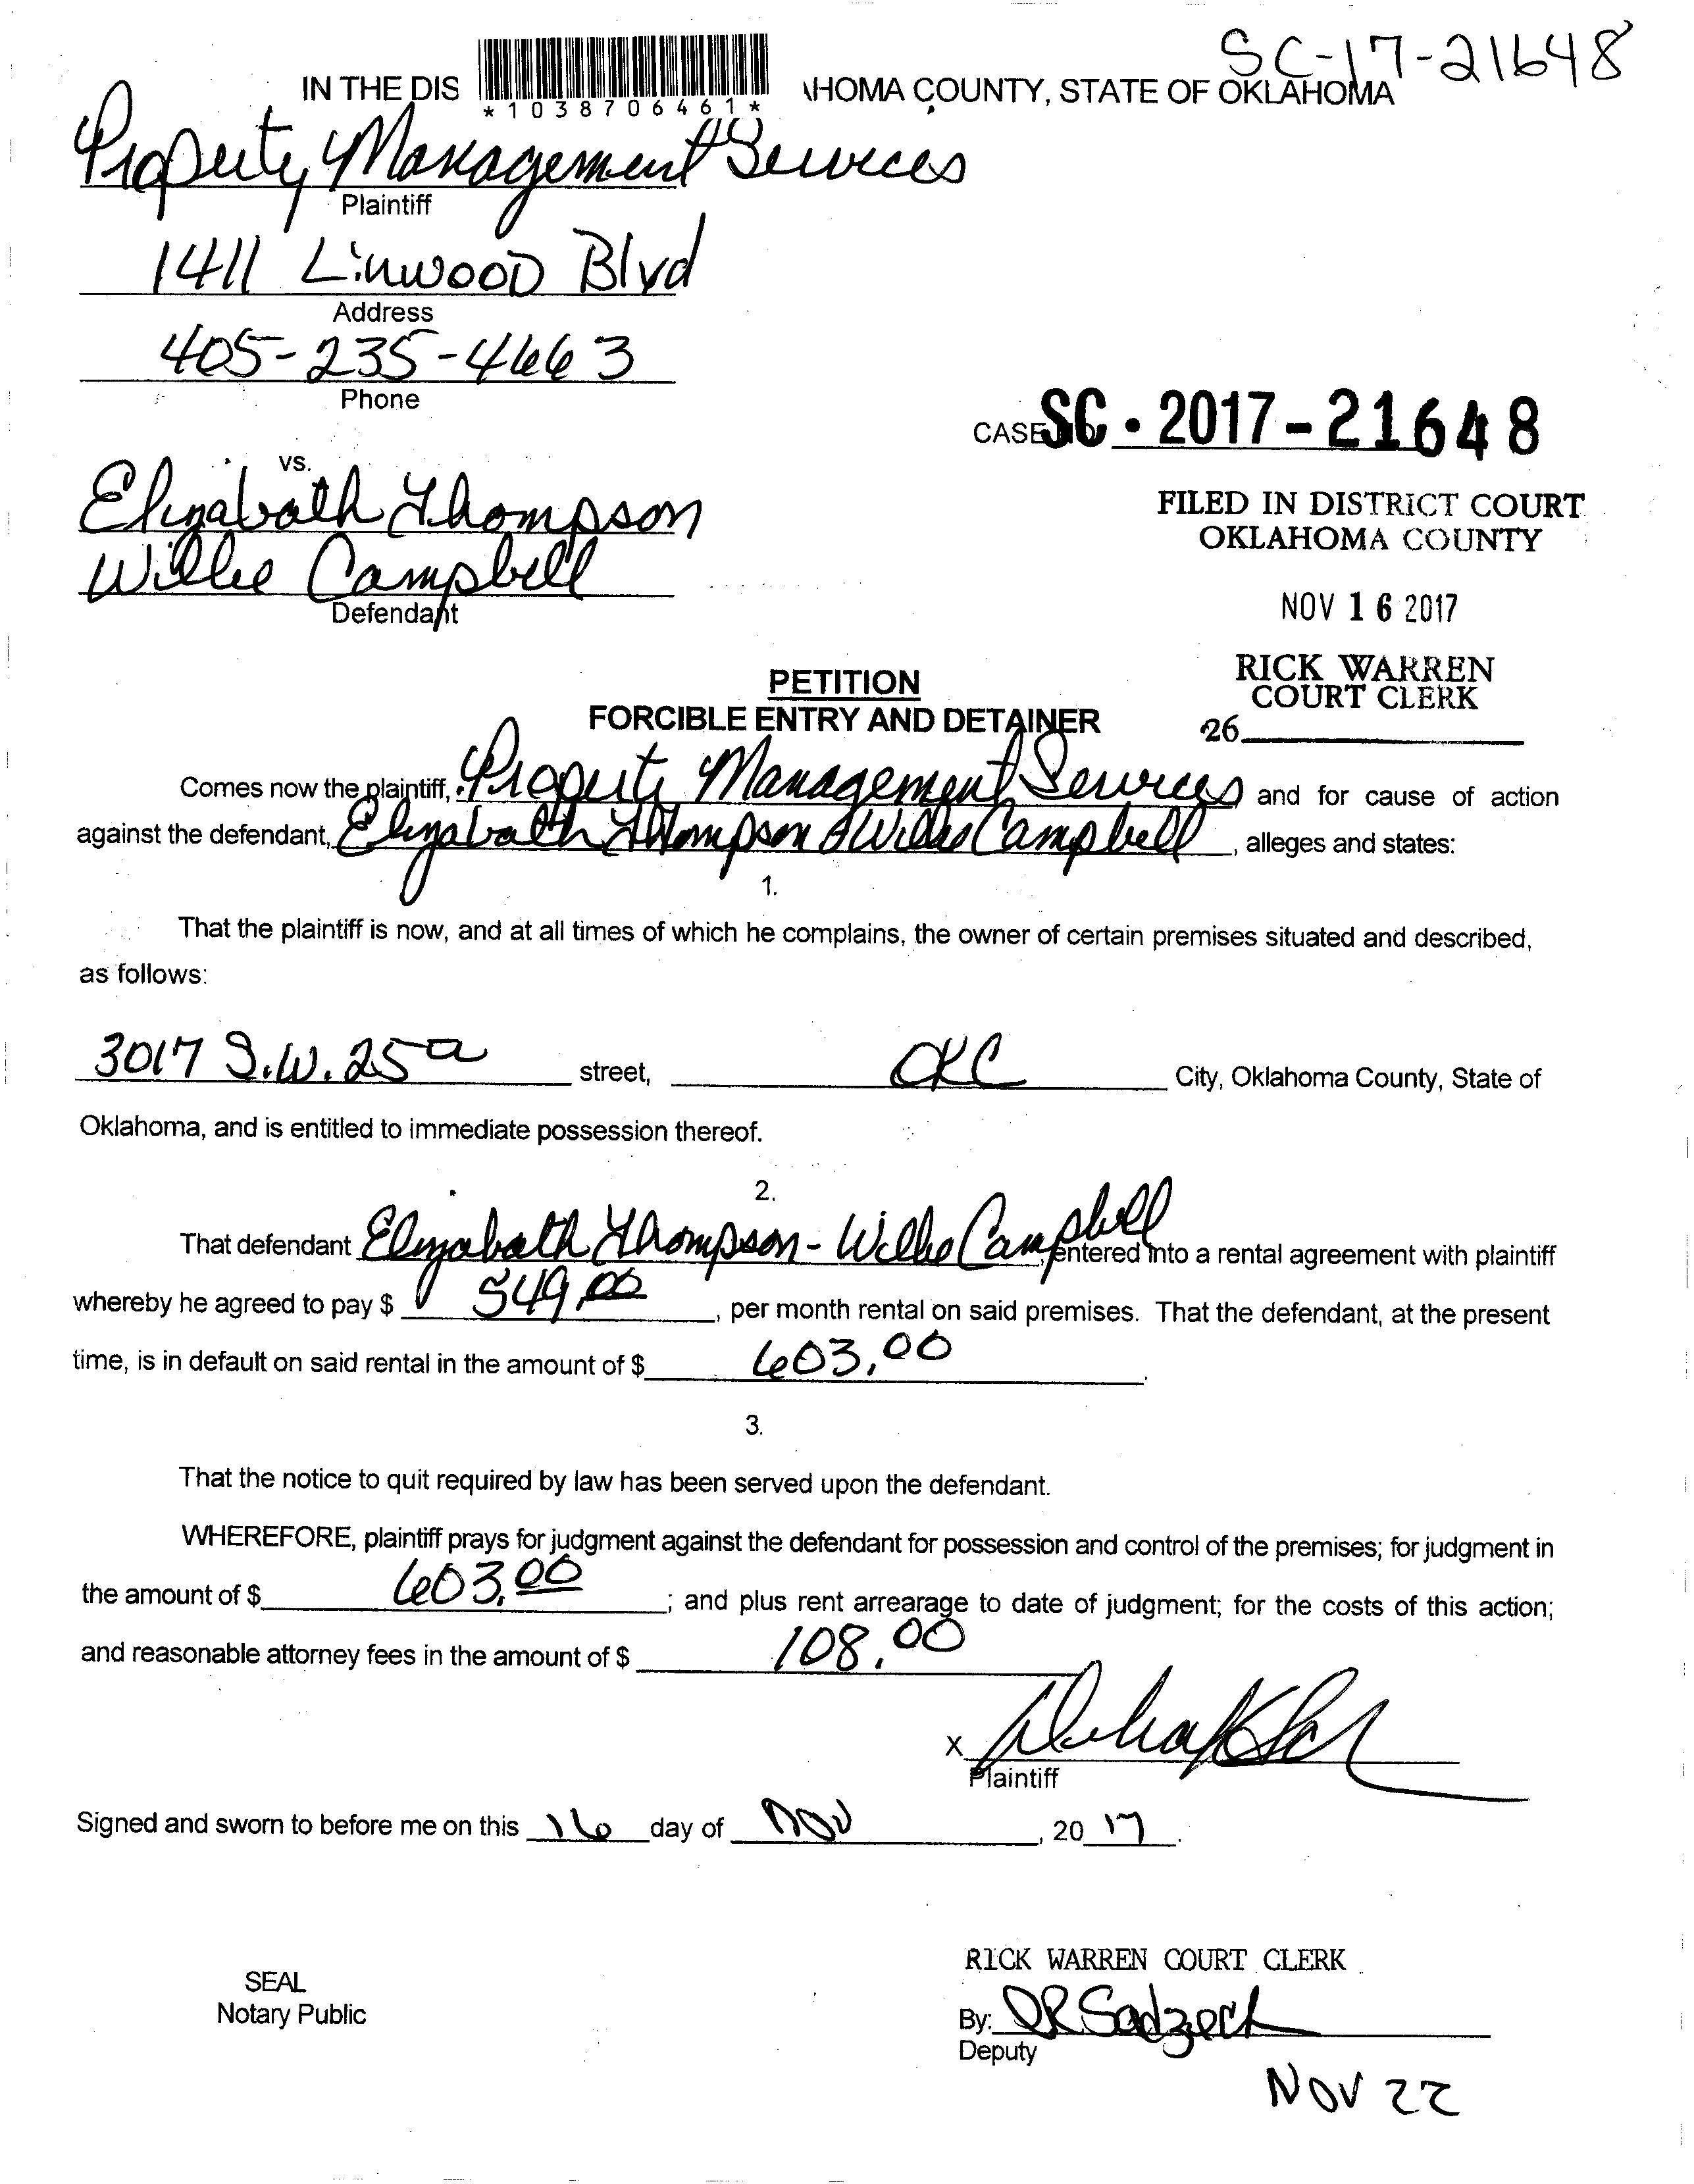 SC-17-21648
IN THE DIS AHOMA COUNTY, STATE OF OKLAHOMA
*1038706461*
Property Management Services
Plaintiff
1411 Linwood Blvd
Address
405-235-4663
Phone
CASE SC-2017-21648
vs.
Elizabath Thompson
Willie Campbell
Defendant
FILED IN DISTRICT COURT
OKLAHOMA COUNTY
NOV 16 2017
RICK WARREN
COURT CLERK
26
PETITION
FORCIBLE ENTRY AND DETAINER
Comes now the plaintiff, Property Management Services and for cause of action
against the defendant, Elizabath Thompson & Willie Campbell, alleges and states:
1.
That the plaintiff is now, and at all times of which he complains, the owner of certain premises situated and described,
as follows:
3017 S.W. 25 street, OKC City, Oklahoma County, State of
Oklahoma, and is entitled to immediate possession thereof.
2.
That defendant Elizabath Thompson - Willie Campbell, entered into a rental agreement with plaintiff
whereby he agreed to pay $ 549.00, per month rental on said premises. That the defendant, at the present
time, is in default on said rental in the amount of $ 603.00.
3.
That the notice to quit required by law has been served upon the defendant.
WHEREFORE, plaintiff prays for judgment against the defendant for possession and control of the premises; for judgment in
the amount of $ 603.00; and plus rent arrearage to date of judgment; for the costs of this action;
and reasonable attorney fees in the amount of $ 108.00
X
Plaintiff
Signed and sworn to before me on this 16 day of Nov, 2017.
SEAL
Notary Public
RICK WARREN COURT CLERK
By:
Deputy
NOV 22